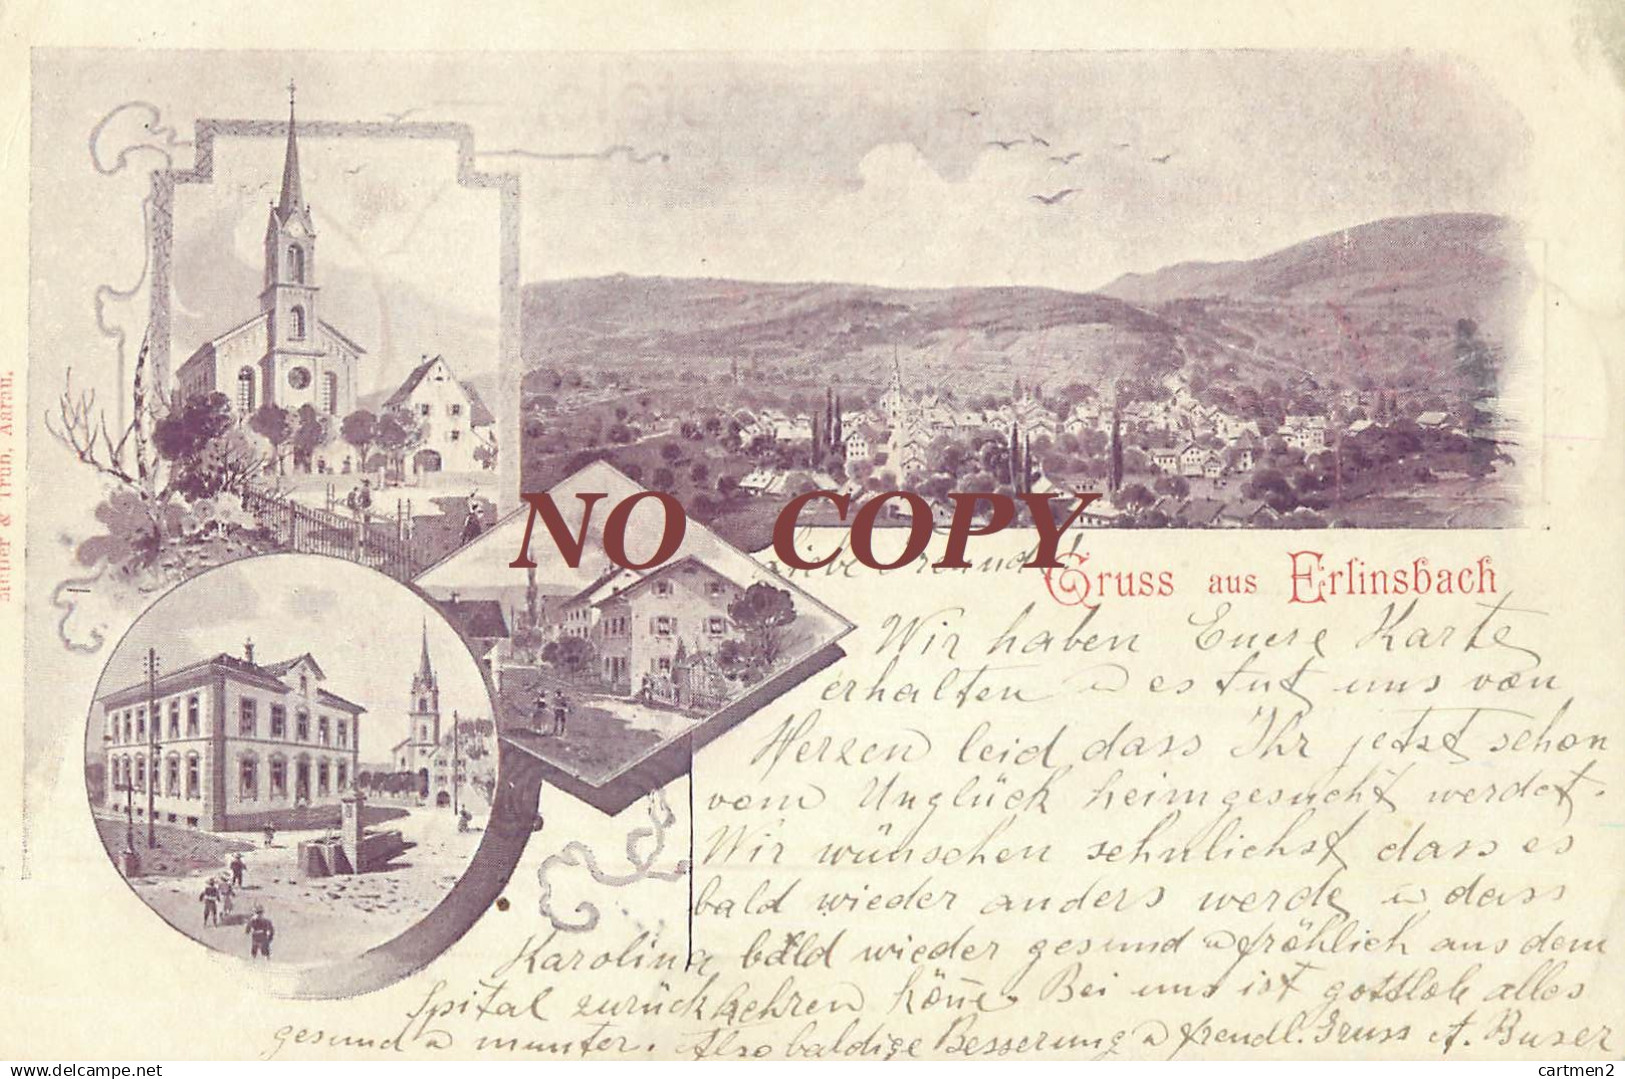 NO COPY
Liebe Freunde!
Gruss aus Erlinsbach
Wir haben Euere Karte
erhalten u es tut uns von
Herzen leid dass Ihr jetzt schon
vom Unglück heimgesucht werdet.
Wir wünschen sehnlichst dass es
bald wieder anders werde u dass
Karolina bald wieder gesund u fröhlich aus dem
Spital zurückkehren könne. Bei uns ist gottlob alles
gesund u munter. Also baldige Besserung u freundl. Gruss A. Buser
& Trüb, Aarau.
delcampe.net
cartmen2